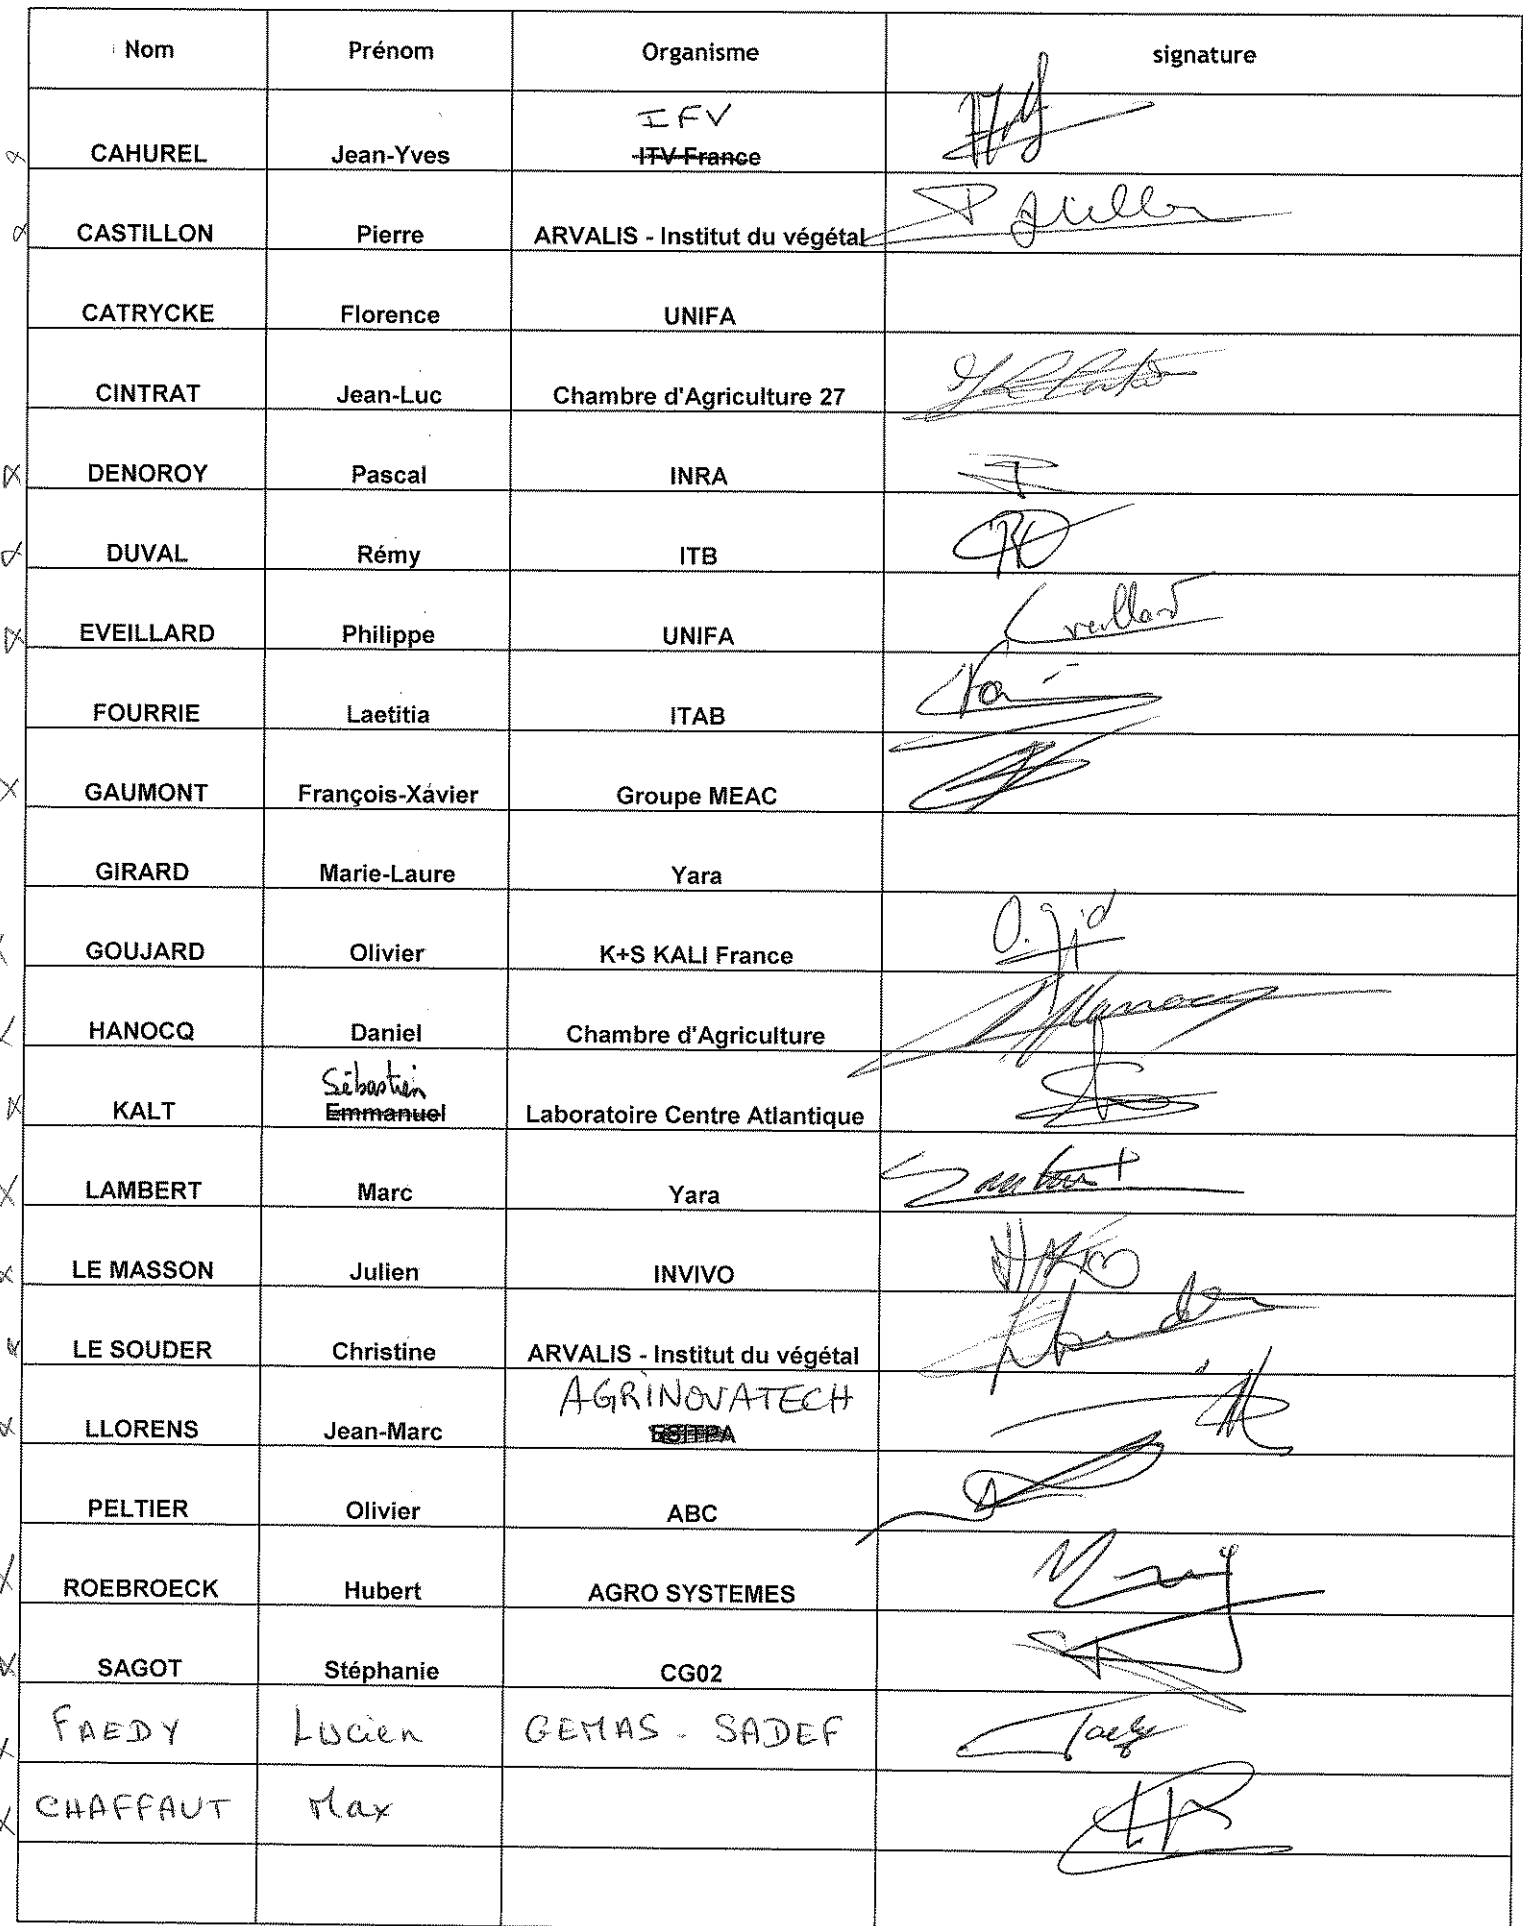 Nom Prénom Organisme signature
IFV
CAHUREL Jean-Yves ITV France
CASTILLON Pierre ARVALIS - Institut du végétal
CATRYCKE Florence UNIFA
CINTRAT Jean-Luc Chambre d'Agriculture 27
DENOROY Pascal INRA
DUVAL Rémy ITB
EVEILLARD Philippe UNIFA
FOURRIE Laetitia ITAB
GAUMONT François-Xavier Groupe MEAC
GIRARD Marie-Laure Yara
GOUJARD Olivier K+S KALI France
HANOCQ Daniel Chambre d'Agriculture
Sébastien
KALT Emmanuel Laboratoire Centre Atlantique
LAMBERT Marc Yara
LE MASSON Julien INVIVO
LE SOUDER Christine ARVALIS - Institut du végétal
AGRINOVATECH
LLORENS Jean-Marc ESITPA
PELTIER Olivier ABC
ROEBROECK Hubert AGRO SYSTEMES
SAGOT Stéphanie CG02
FAEDY Lucien GEMAS - SADEF
CHAFFAUT Max